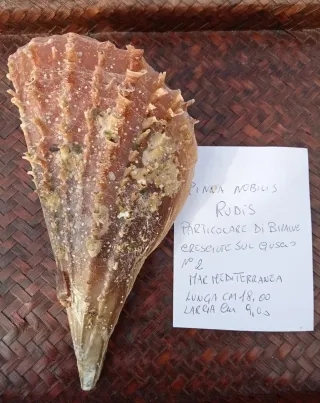 PINNA NOBILIS
RUDIS
PARTICOLARE DI BIVALVE
CRESCIUTE SUL GUSCIO
N° 2
MAR MEDITERRANEA
LUNGA CM 18,00
LARGA CM 9,05